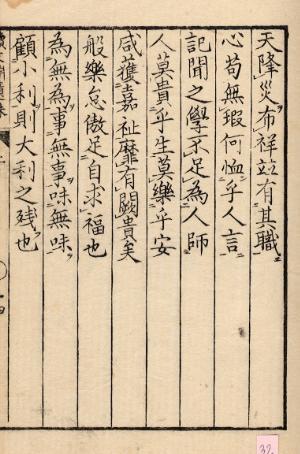 天降災布祥並有其職
心苟無瑕何恤乎人言
記聞之學不足為人師
人莫貴乎生莫樂乎安
咸獲嘉祉靡有闕貴矣
般樂怠傲足自求福也
為無為事無事味無味
顧小利則大利之残也
32